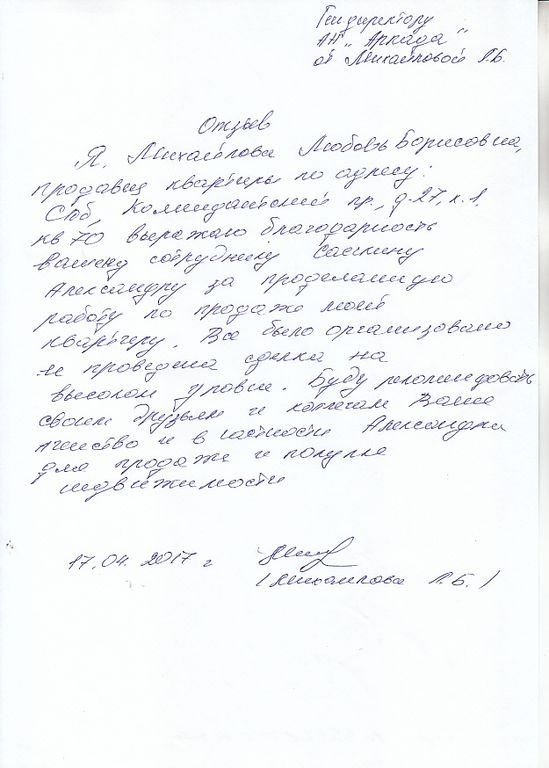 Гендиректору
АН "Аркада"
от Михайловой Л.Б.
Отзыв
Я, Михайлова Любовь Борисовна,
продавец квартиры по адресу:
Спб, Комендантский пр., д. 27, к. 1,
кв 70 выражаю благодарность
вашему сотруднику Саскину
Александру за проделанную
работу по продаже моей
квартиры. Все было организовано
и проведена сделка на
высоком уровне. Буду рекомендовать
своим друзьям и коллегам Ваше
агенство и в частности Александра
для продажи и покупке
недвижимости
17.04.2017 г
/Михайлова Л.Б./